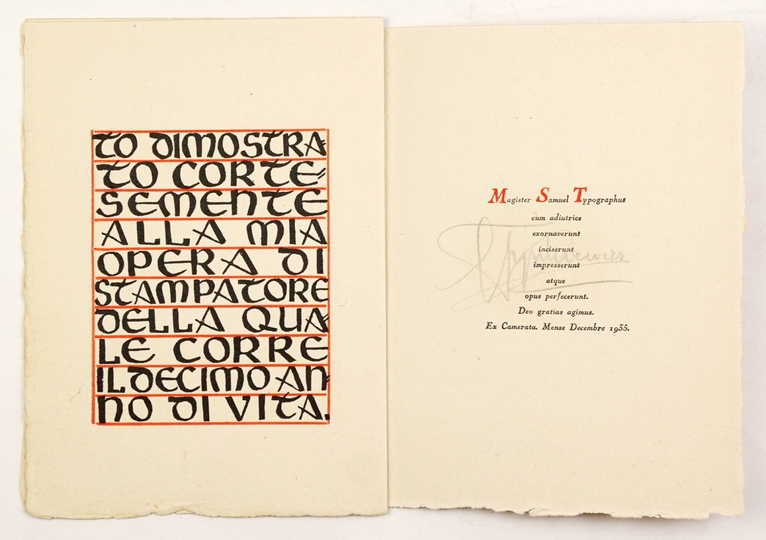 TO DIMOSTRA
TO CORTE=
SEMENTE
ALLA MIA
OPERA DI
STAMPATORE
DELLA QUA
LE CORRE
IL DECIMO AN
NO DI VITA.
Magister Samuel Typographus
cum adiutrice
exornaverunt
inciserunt
impresserunt
atque
opus perfecerunt.
Deo gratias agimus.
Ex Camerata. Mense Decembre 1935.